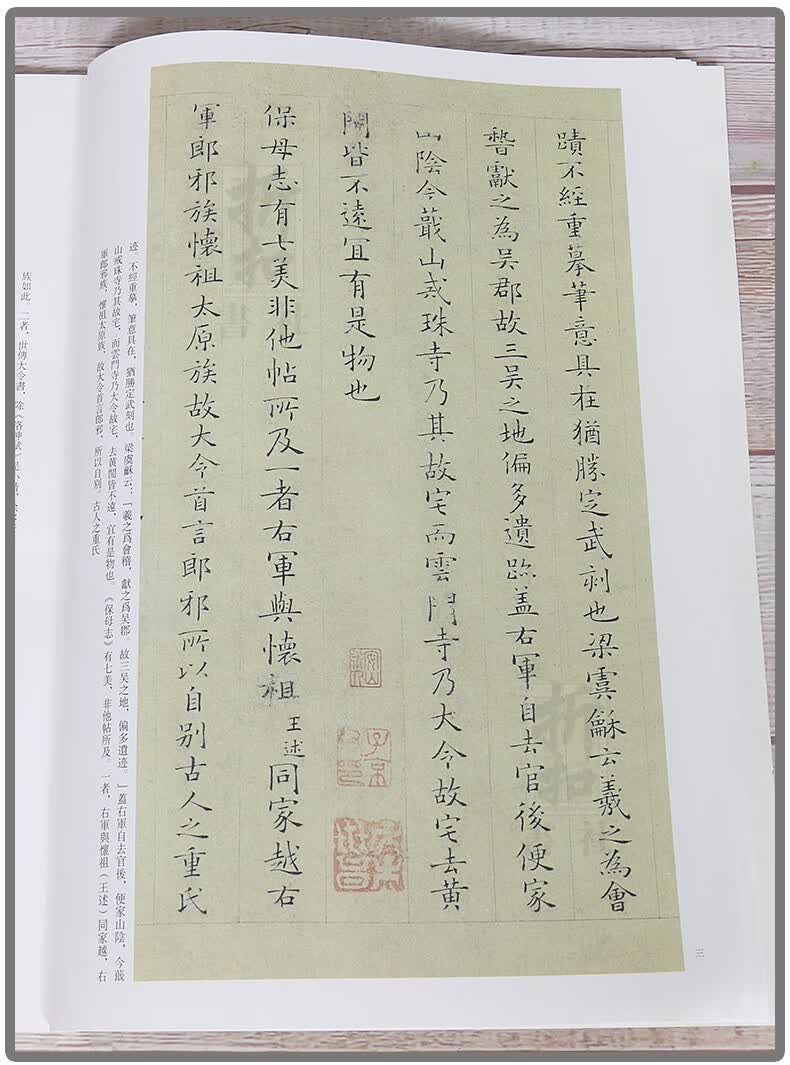 蹟不經重摹筆意具在猶勝定武刻也梁虞龢云羲之為會
稽獻之為吴郡故三吴之地偏多遺跡盖右軍自去官後便家
山陰今蕺山戒珠寺乃其故宅而雲門寺乃大令故宅去黄
閍皆不遠宜有是物也
保母志有七美非他帖所及一者右軍與懷祖王述同家越右
軍郎邪族懷祖太原族故大令首言郎邪所以自别古人之重氏
迹。不經重摹，筆意具在，猶勝定武刻也。梁虞龢云：「羲之爲會稽，獻之爲吴郡。故三吴之地，偏多遺迹。」蓋右軍自去官後，便家山陰，今蕺
山戒珠寺乃其故宅，而雲門寺乃大令故宅，去黄閍皆不遠，宜有是物也。《保母志》有七美，非他帖所及。一者，右軍與懷祖（王述）同家越，右
軍郎邪族，懷祖太原族，故大令首言郎邪，所以自别。古人之重氏
族如此。二者，世傳大令書，除《洛神賦》是小
三